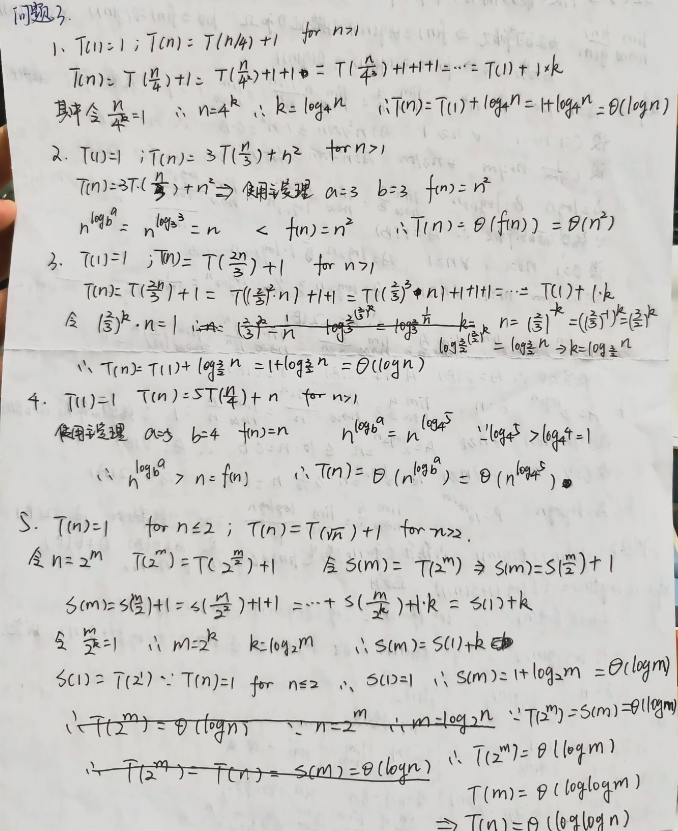 问题3.
1. T(1)=1 ; T(n)= T(n/4)+1 for n>1
T(n)= T(n/4)+1= T(n/4²)+1+1 = T(n/4³)+1+1+1=⋯= T(1)+1×k
其中令 n/4^k=1 ∴ n=4^k ∴ k=log₄n ∴T(n)=T(1)+log₄n=1+log₄n=θ(logn)
2. T(1)=1 ; T(n)= 3T(n/3)+n² for n>1
T(n)=3T·(n/3)+n² ⇒ 使用主定理 a=3 b=3 f(n)=n²
n^(log_b a)= n^(log₃3)=n < f(n)=n² ∴T(n)=θ(f(n))=θ(n²)
3. T(1)=1 ; T(n)= T(2n/3)+1 for n>1
T(n)=T(2n/3)+1 = T((2/3)²·n)+1+1=T((2/3)³·n)+1+1+1=⋯= T(1)+1·k
令 (2/3)^k·n=1 n=(2/3)^(-k)=((2/3)^(-1))^k=(3/2)^k
log_(3/2)(3/2)^k = log_(3/2)n ⇒k=log_(3/2)n
∴ T(n)=T(1)+log_(3/2)n=1+log_(3/2)n=θ(logn)
4. T(1)=1 T(n)=5T(n/4)+n for n>1
使用主定理 a=5 b=4 f(n)=n n^(log_b a)=n^(log₄5) ∵log₄5>log₄4=1
∴ n^(log_b a) > n=f(n) ∴T(n)=θ(n^(log_b a))=θ(n^(log₄5))
5. T(n)=1 for n≤2 ; T(n)=T(√n)+1 for n>2.
令n=2^m T(2^m)=T(2^(m/2))+1 令S(m)=T(2^m) ⇒ S(m)=S(m/2)+1
S(m)=S(m/2)+1=S(m/2²)+1+1=⋯+S(m/2^k)+1·k = S(1)+k
令 m/2^k=1 ∴ m=2^k k=log₂m ∴S(m)=S(1)+k
S(1)=T(2¹) ∵T(n)=1 for n≤2 ∴ S(1)=1 ∴S(m)=1+log₂m=θ(logm)
∴T(2^m)=θ(logn) ∵n=2^m ∴m=log₂n ∵T(2^m)=S(m)=θ(logm)
∴T(2^m)=T(n)=S(m)=θ(logn) ∴T(2^m)=θ(logm)
T(m)=θ(loglogm)
⇒T(n)=θ(loglogn)